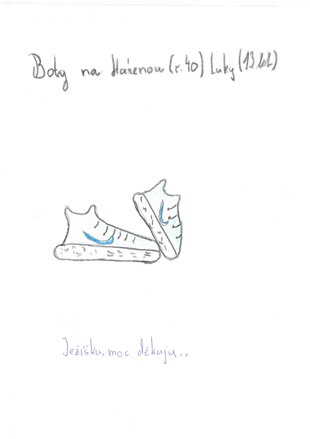 Boty na Házenou (v.40) Luky (13 let)
Ježíšku moc děkuju..